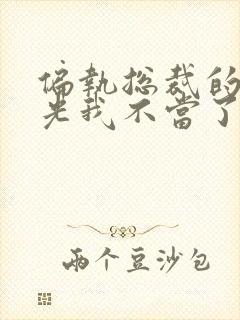 偏執总裁的
光我不當了
兩个豆沙包